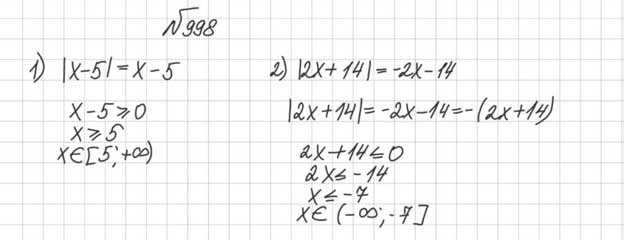 №998
1) |x-5| = x-5
x-5 ⩾ 0
x ⩾ 5
x ∈ [5; +∞)
2) |2x+14| = -2x-14
|2x+14| = -2x-14 = -(2x+14)
2x+14 ⩽ 0
2x ⩽ -14
x ⩽ -7
x ∈ (-∞; -7]